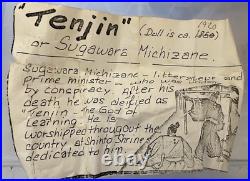 1920
"Tenjin" (Doll is ca. 1860)
or Sugawara Michizane.
Sugawara Michizane, litterateur and
prime minister - who was
by conspiracy. After his
death he was deified as
"Tenjin - the God of
Learning. He is
worshipped throughout the
country at Shinto Shrines
dedicated to him.